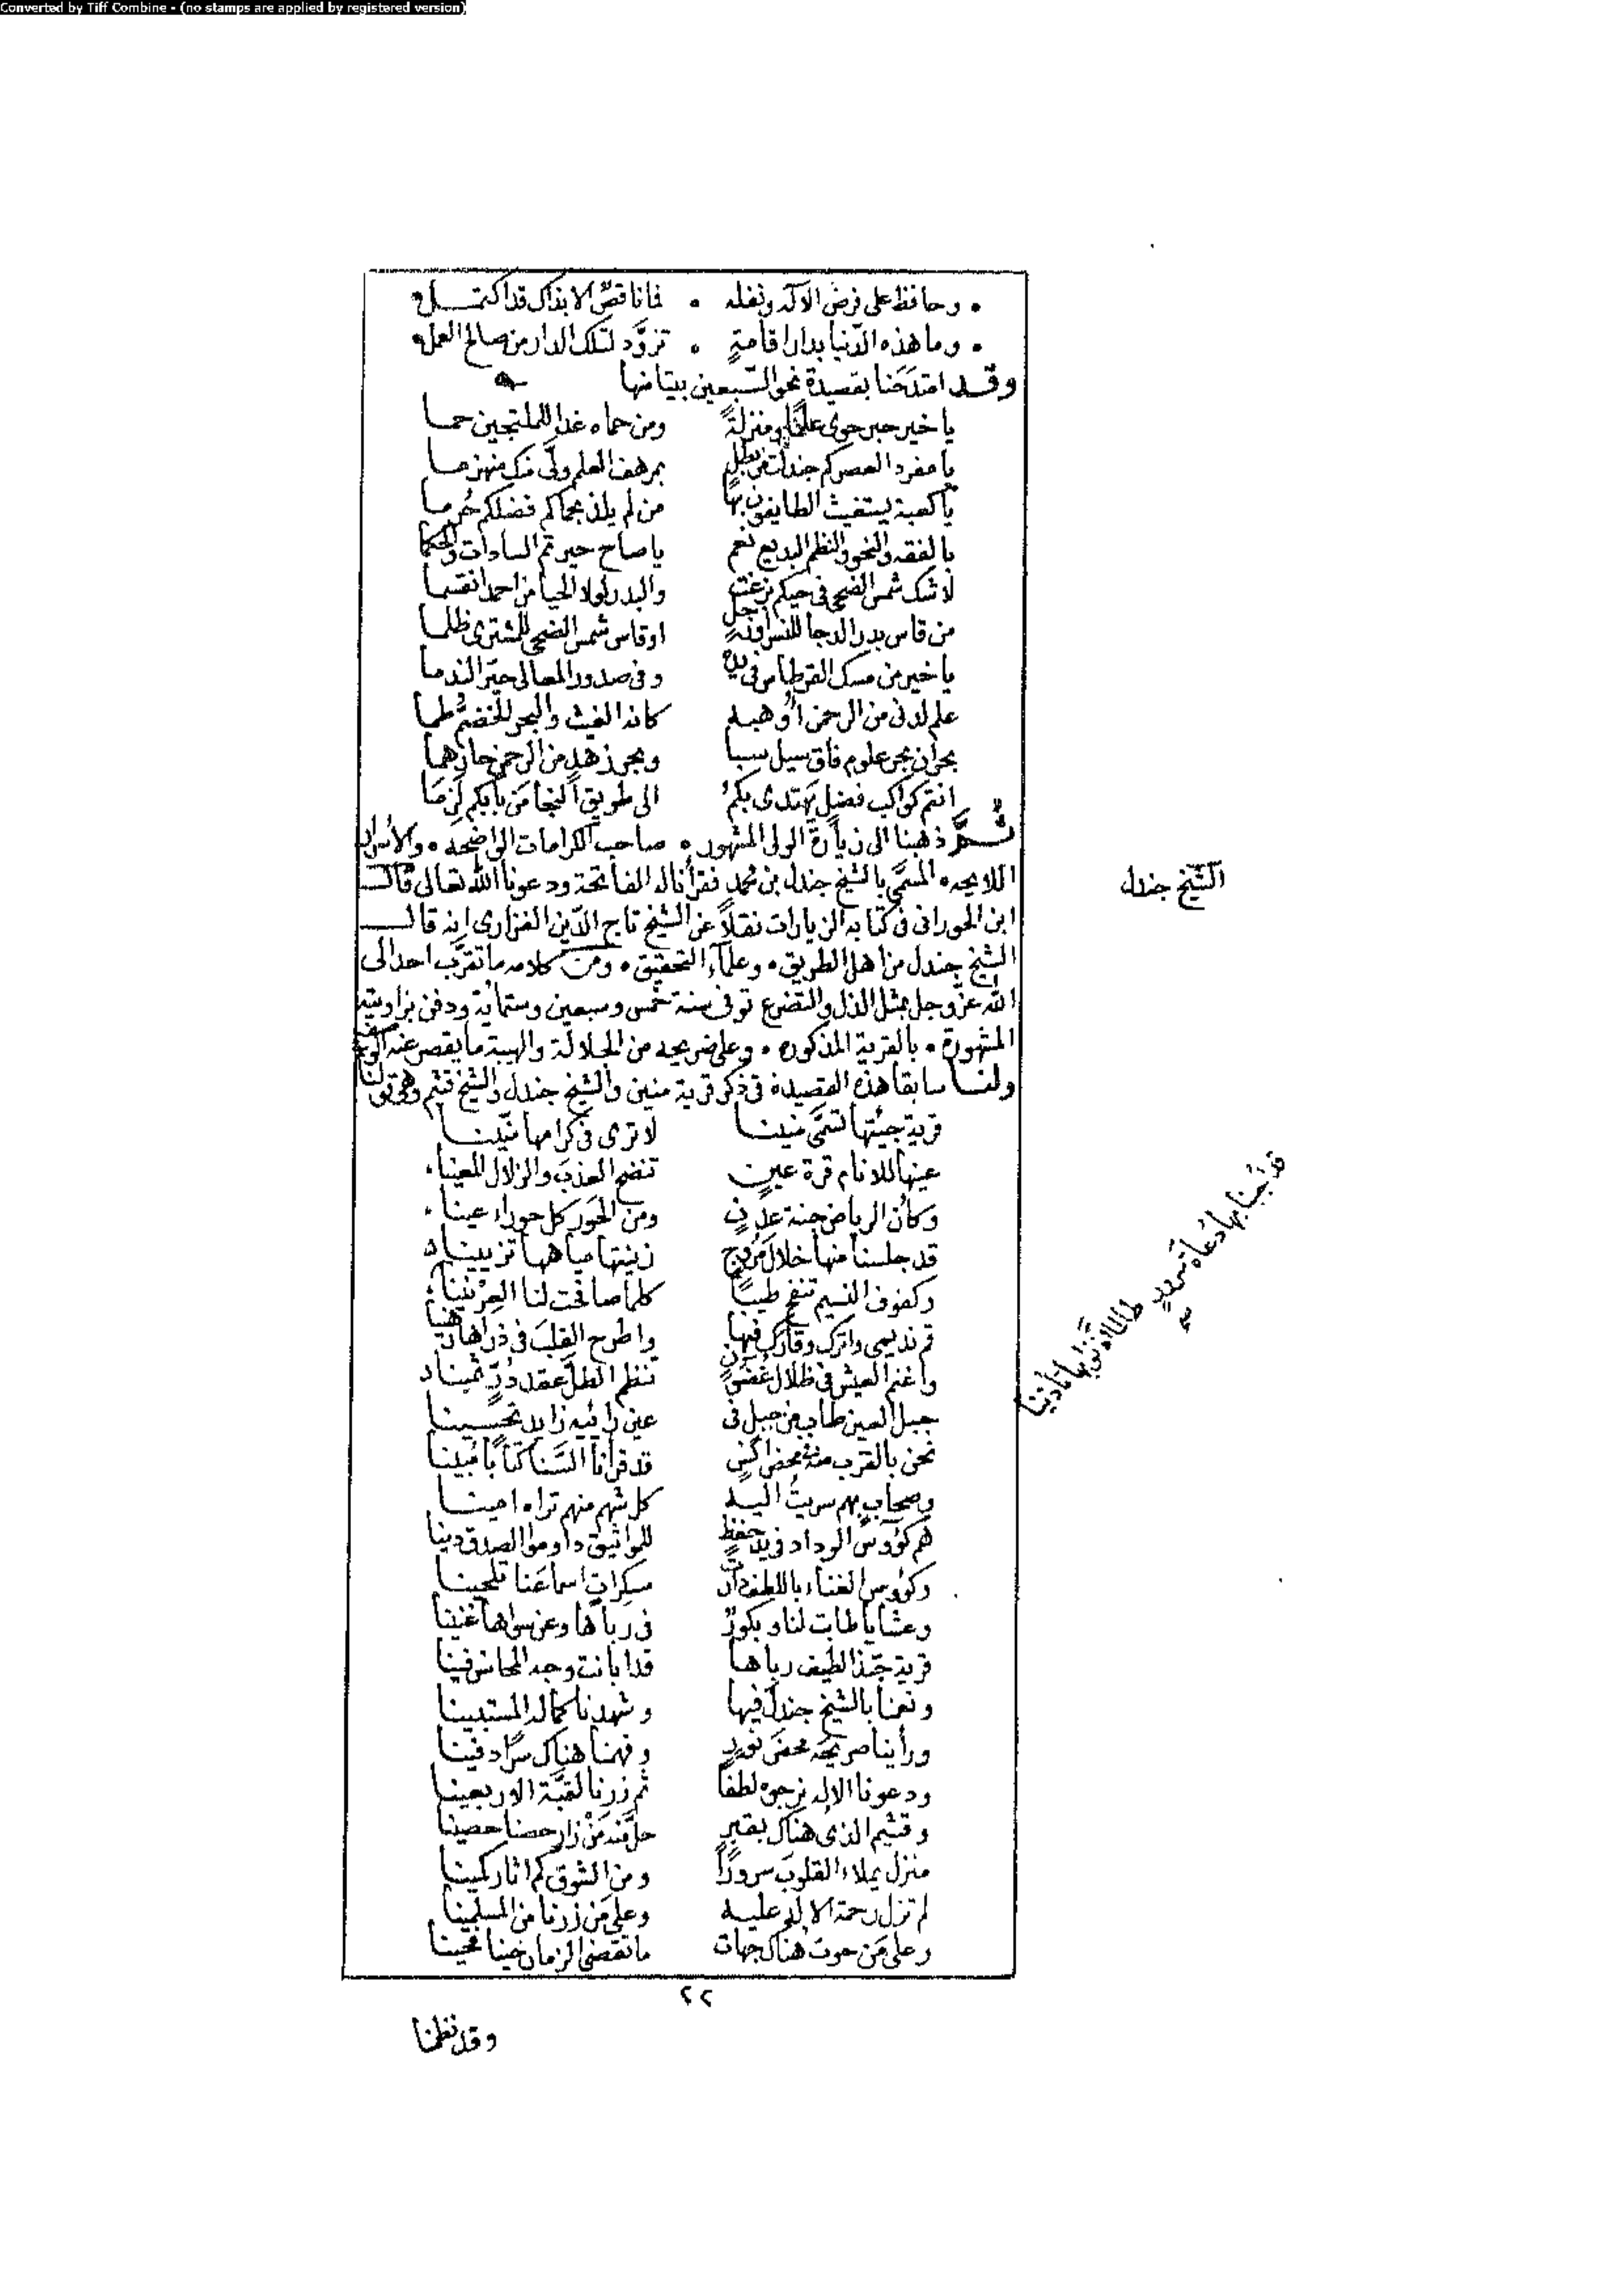 Converted by Tiff Combine - (no stamps are applied by registered version)
وحافظ على فرض الاله ونفله • فما ناقص الا بذاك قد اكتمل
وما هذه الدنيا بدار اقامةٍ • تزوَّد لتلك الدار من صالح العمل
وقد امتدحنا بقصيدة نحو السبعين بيتا منها
يا خير حبر حوى علمًا ومنزلةً ومن حماه غدا للملتجين حما
يا مفرد العصر كم من بطل بمرهف العلم ولَّى منك منهزما
يا كعبة يستغيث الطايفون بها من لم يلذ بحماكم فضلكم حُرما
بالفقه والنحو والنظم البديع نعم يا صاح حير تم السادات والحكما
لا شك شمس الضحى في حيكم بزغت والبدر لولا الحيا من احمد انقسما
من قاس بدر الدجا للنسر او زحل او قاس شمس الضحى للمشترى ظلما
يا خير من مسك القرطاس في يده وفي صدور المعالى حيّر الندما
علم لدنى من الرحمن أُوهبه كانه الغيث والبحر الخضمُّ طما
بحران بحر علوم فاق سيل سبا وبحر زهدٍ من الرحمن حازهما
انتم كواكب فضلٍ يهتدى بكمُ الى طريق النجا مَن بابكم لَزِمَا
ثم ذهبنا الى زيارة الولى المشهور • صاحب الكرامات الواضحه • والاسرار
اللايحه • المسمَّى بالشيخ جندل بن محمد فقرأنا له الفاتحة ودعونا الله تعالى قال
الشيخ جندل
ابن الحوراني في كتابه الزيارات نقلاً عن الشيخ تاج الدّين الفزارى انه قال
الشيخ جندل من اهل الطريق • وعلمآء التحقيق • ومن كلامه ما تقرَّب احد الى
الله عزّ وجل بمثل الذل والتضرع توفى سنة خمس وسبعين وستمائة ودفن بزاويته
المشهورة • بالقرية المذكوره • وعلى ضريحه من الجلالة والهيبة ما يقصر عنه الوصف
ولنا سابقا هذه القصيدة في ذكر قرية منين والشيخ جندل والشيخ قثيم وهى قولنا
قرية جئتها تسمَّى منينا لا ترى في كرامها منّينا
عينها للانام قرة عينٍ تنضح العذب والزلال المعينا
وكأن الرياض جنة عدنٍ ومن الحَور كل حوراء عينا
قد جلسنا منها خلال مروج زينتها مياهها تزيينا
وكفوف النسيم تنفح طيبًا كلما صافحت لنا العِرْنينا
قم نديمى واترك وقارك فيها واطرح القلب في ذراها رهينا
واغنم العيش في ظلال غصونٍ تنظم الطلَّ عقد دُرٍّ ثمينا
جبل العين طاب من جبل في عين رائيه زايد تحسينا
نحن بالقرب منه قد قرأنا السَّنا كتابًا مُبينا
وصحابٍ بهم سريتُ اليه كل شهم منهم تراه امينا
هم كؤوس الوداد في يد حفظٍ للمواثيق داوموا الصدق دينا
وكؤوس الغناء باللطف دارت مسكراتٍ اسماعَنا تلحينا
وعشايا طابت لنا وبكورٌ في رباها وعن سواها غنينا
قرية حبّذا لطيف رباها قد ابانت وجه المحاسن فينا
ونعمنا بالشيخ جندل فيها وشهدنا كماله المستبينا
ورأينا ضريحَه محضَ نورٍ وفهمنا هناك سرًّا دفينا
ودعونا الاله نرجوه لطفًا ثم زرنا لقبّة الاربعينا
وقثيم الذى هناك بقبرٍ حلَّ منه مَنْ زار حصنا حصينا
منزل يملاء القلوب سرورًا ومن الشوق كم اثار كمينا
لم تزل رحمة الاله عليه وعلى مَن زرنا من المسلمينا
وعلى مَن حوت هُناك جهات ما تقضى الزمان حينا فحينا
٢٢
وقد نظمنا